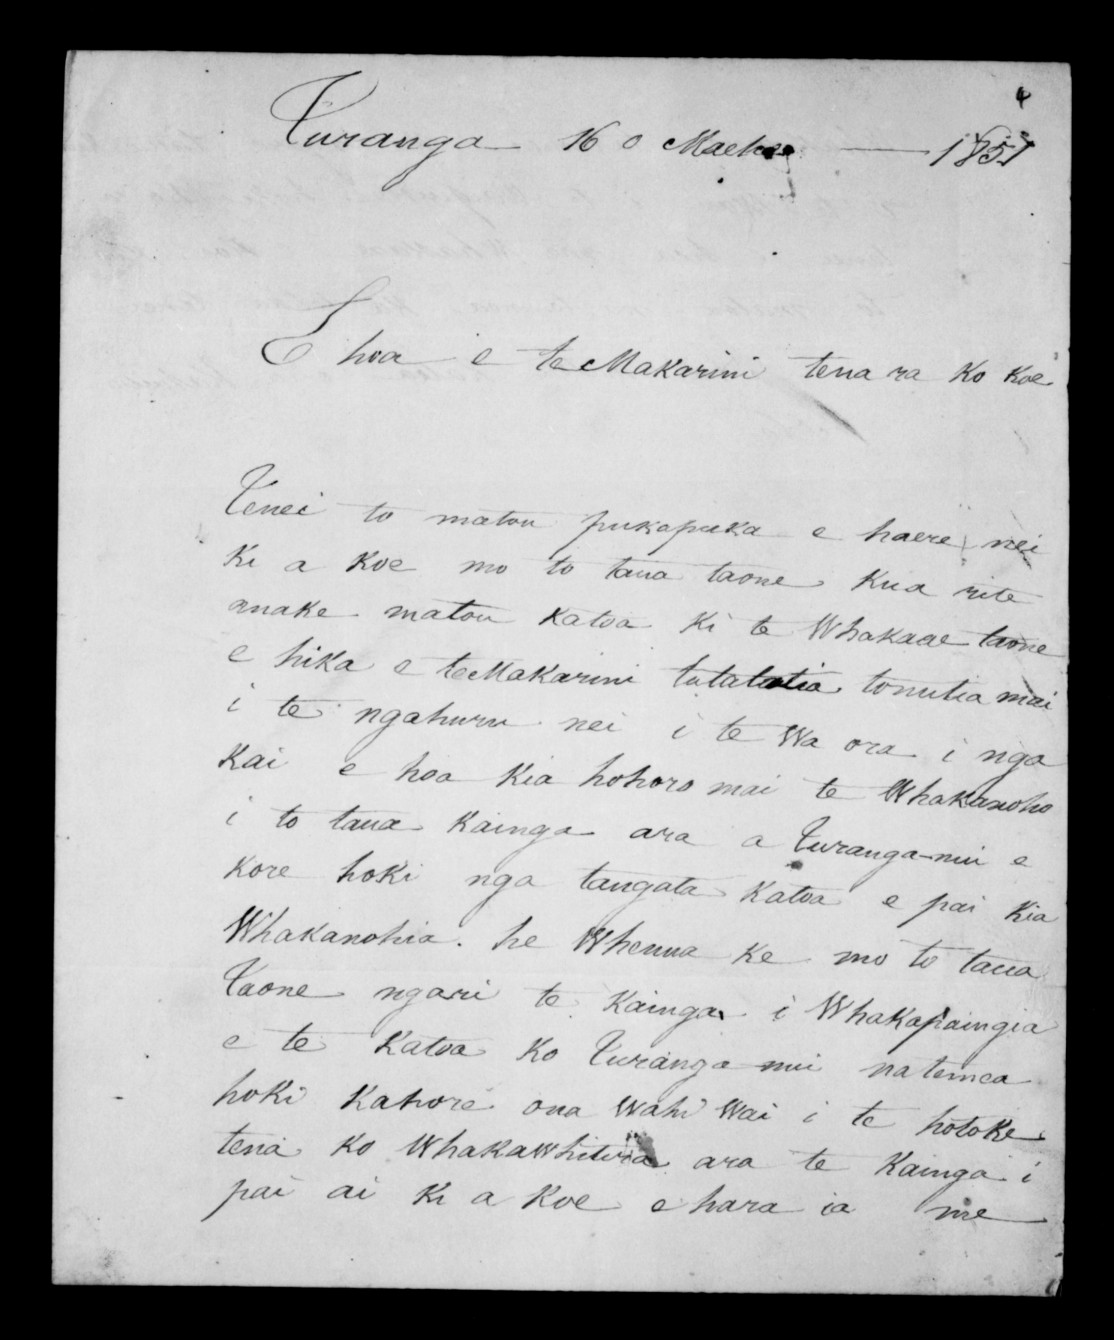 4
Turanga 16 o Maehe 1851
E hoa e te Makarini tena ra ko koe
Tenei to matou pukapuka e haere nei
ki a koe mo to taua taone kua rite
anake matou katoa ki te Whakaae taone
e hika e te Makarini tonutia mai
i te ngahuru nei i te Wa ora i nga
kai e hoa kia hohoro mai te Whakanoho
i to taua kainga ara a Turanga-nui e
kore hoki nga tangata katoa e pai kia
Whakanohia. he Whenua ke mo to taua
Taone ngari te kainga i Whakapaingia
e te katoa ko Turanga nui natemea
hoki kahore ona Wahi Wai i te hotoke
tena ko ara te kainga i
pai ai ki a koe e hara ia me